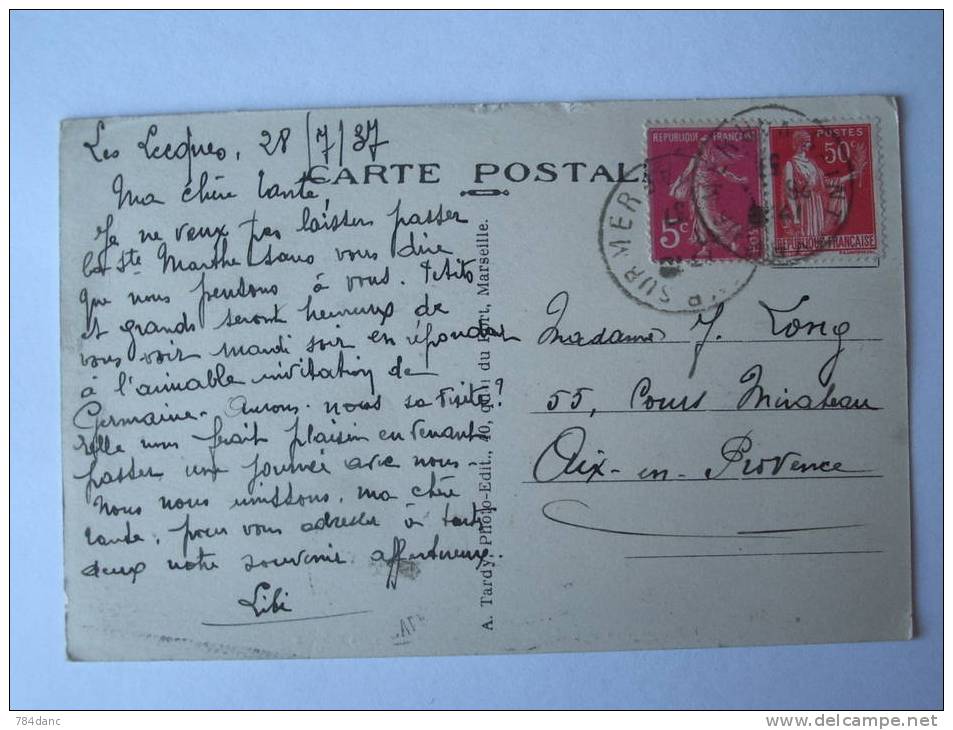 Les Lecques, 28/7/37
CARTE POSTALE
Ma chère tante,
Je ne veux pas laisser passer
la Ste Marthe sans vous dire
que nous pensons à vous. Petits
et grands seront heureux de
vous voir mardi soir en répondant
à l'aimable invitation de
Germaine. Aurons-nous sa visite?
Elle nous ferait plaisir en venant
passer une journée avec nous.
Nous nous unissons, ma chère
tante, pour vous adresser à toutes
deux notre souvenir affectueux.
Libi
A. Tardy, Photo-Edit., 40, quai du Port, Marseille.
REPUBLIQUE FRANÇAISE
5c
POSTES
50c
REPUBLIQUE FRANÇAISE
SUR MER
Madame J. Long
55, Cours Mirabeau
Aix-en-Provence
784danc
www.delcampe.net